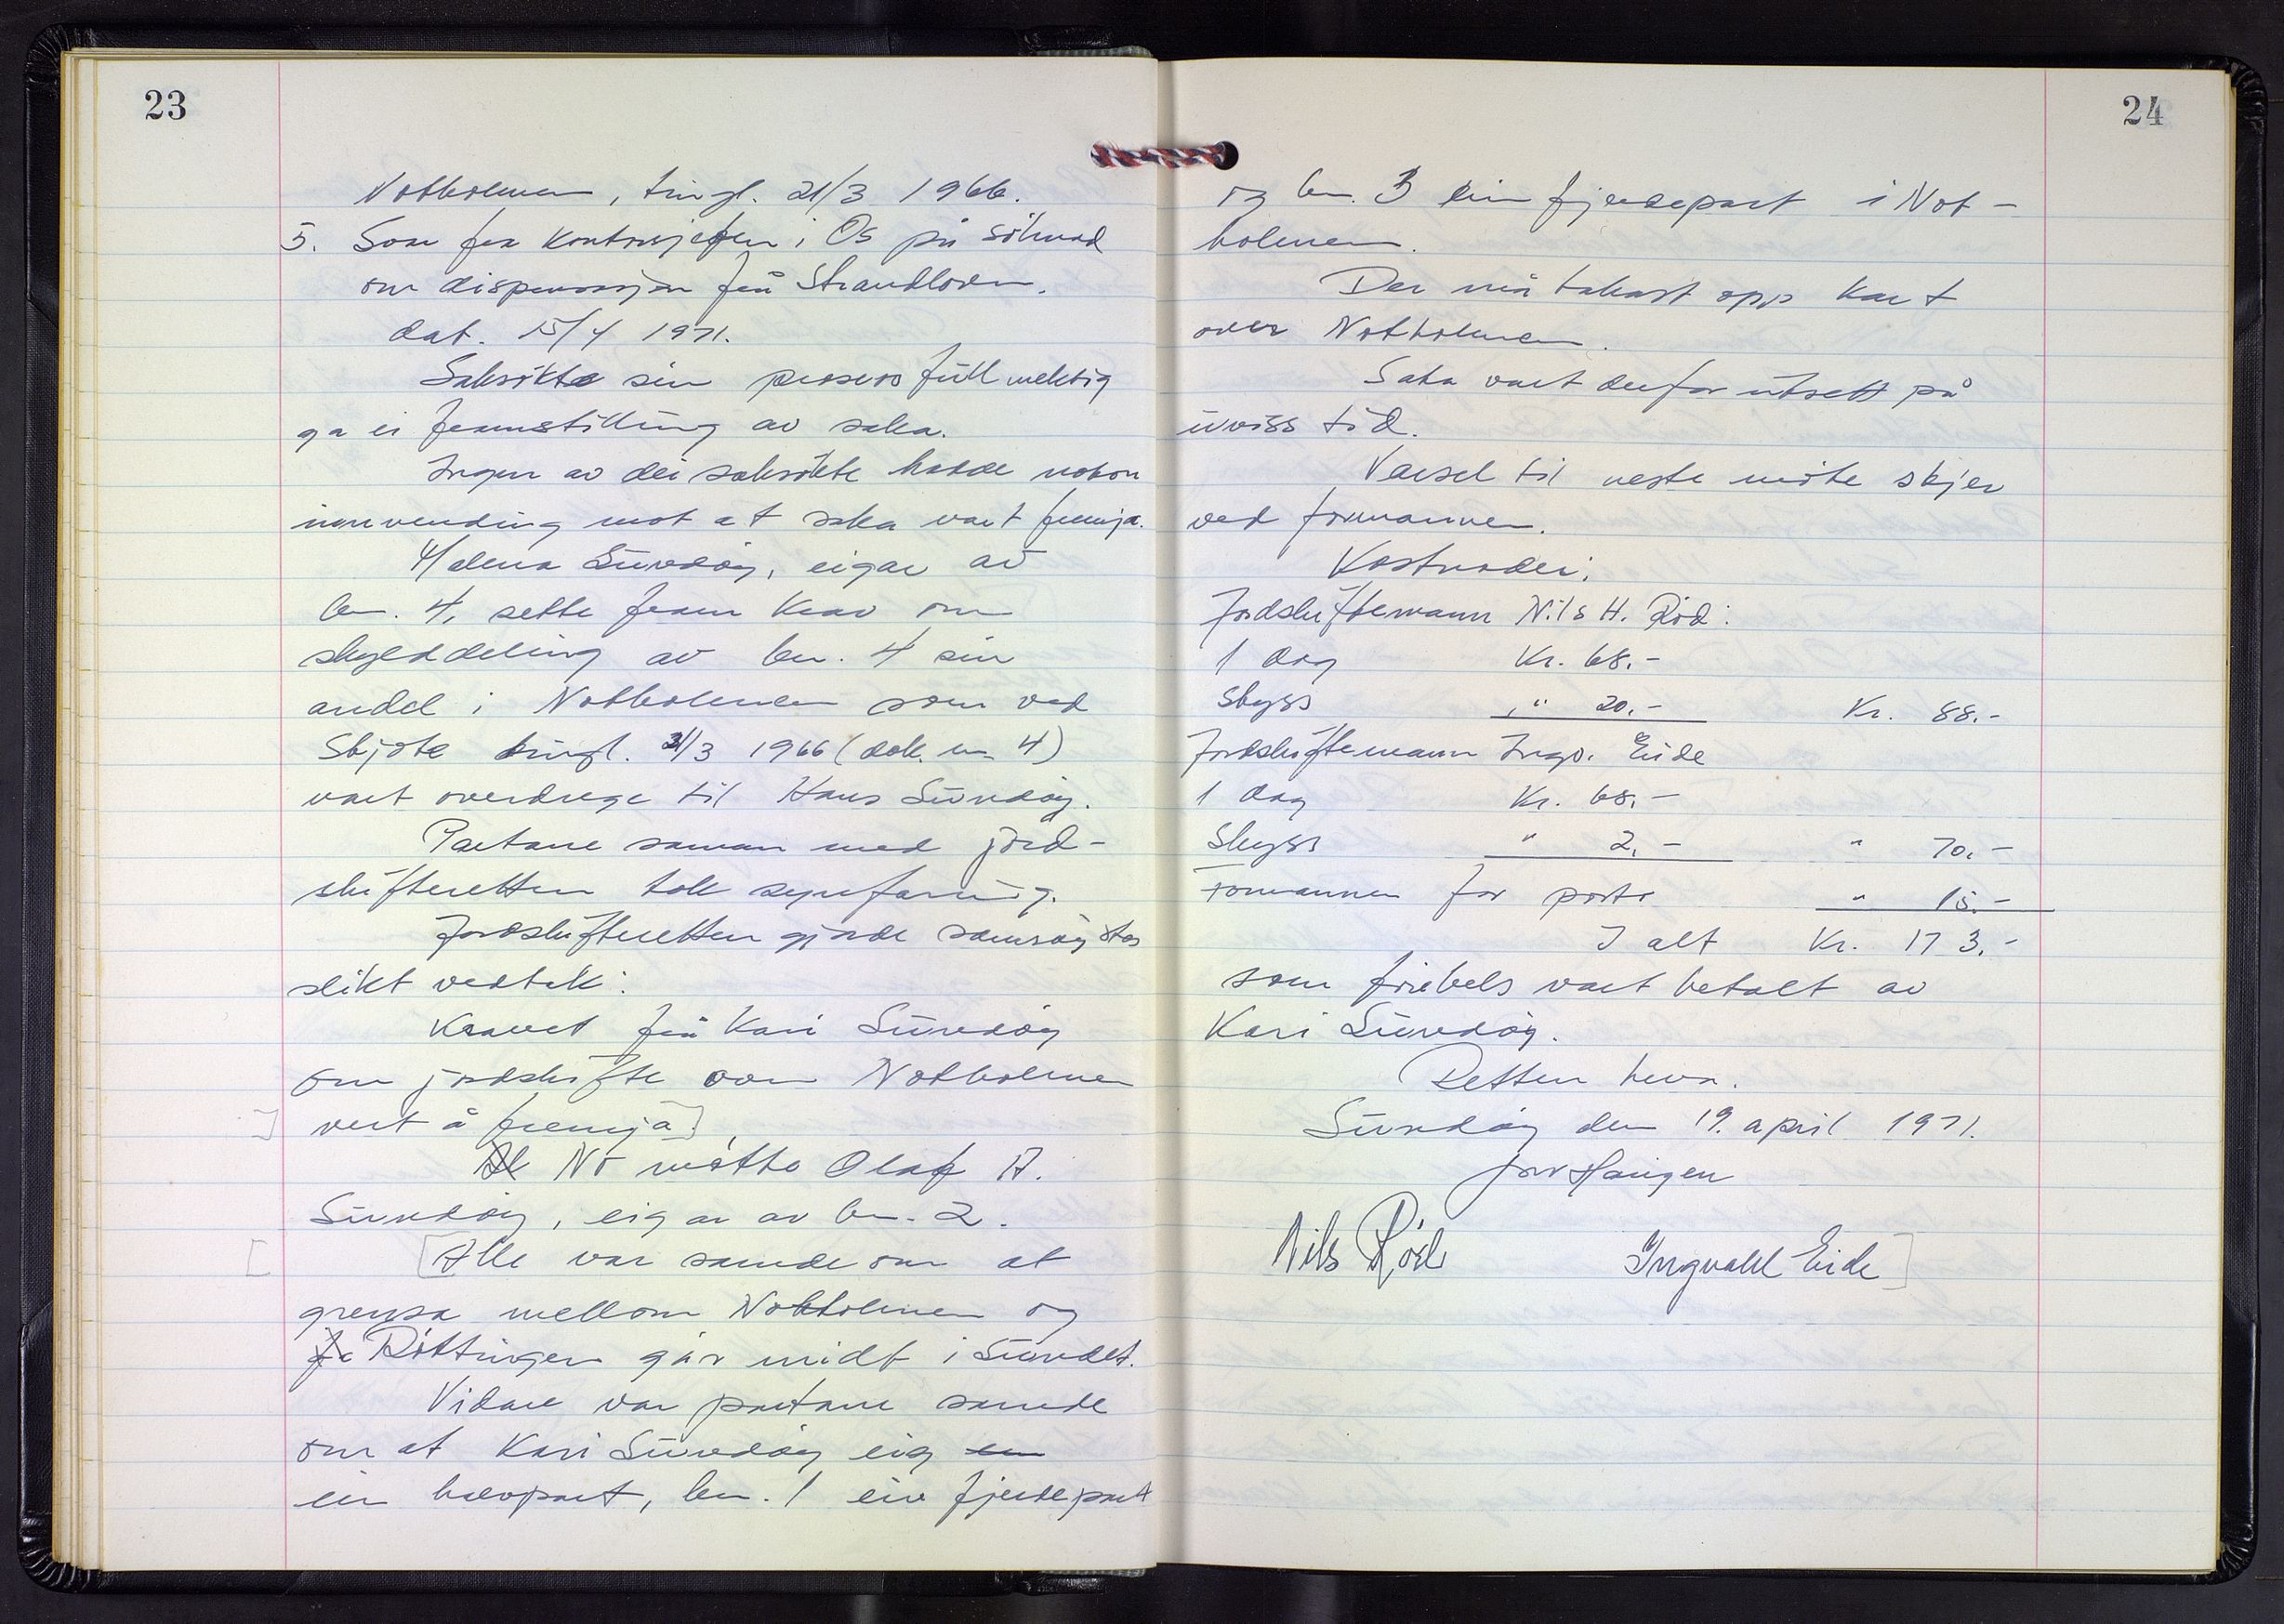 23
Notholmen, tingl. 21/3 1966.
5. Svar fra kontorsjefen i Os på söknad
om dispensasjon frå Strandloven.
dat. 15/4 1971.
Saksökte sin prosessfullmektig
ga ei framstilling av saka.
Ingen av dei saksökte hadde nokon
innvending mot at saka vart fremja.
Halena Sundöy, eigar av
bn. 4, sette fram krav om
skylddeling av bn. 4 sin
andel i Notholmen som ved
Skjöte tingl. 21/3 1966 (dok. nr 4)
vart overdrege til Hans Sundöy.
Partane saman med jord-
skifteretten tok synfaring.
Jordskifteretten gjorde samröystes
slikt vedtak:
Kravet frå Kari Sundöy
om jordskifte over Notholmen
vert å fremja.
No mötte Olaf A.
Sundöy, eigar av bn. 2.
Alle var samde om at
grensa mellom Notholmen og
Röttingen går midt i Sundet.
Vidare var partane samde
om at Kari Sundöy eig en
ein halvpart, bn. 1 ein fjerdepart
24
og bn. 3 ein fjerdepart i Not-
holmen.
Der må takast opp kart
over Notholmen.
Saka vart derfor utsett på
uviss tid.
Varsel til neste möte skjer
ved formannen.
Kostnader:
Jordskiftemann Nils H. Röd:
1 dag Kr. 68.-
Skyss " 20.- Kr. 88.-
Jordskiftemann Ingv. Eide
1 dag Kr. 68.-
Skyss " 2.- " 70.-
Formannen for porto " 15.-
I alt Kr. 173.-
som förebels vart betalt av
Kari Sundöy.
Retten heva.
Sundöy den 19. april 1971.
Haugen
Nils Röd Ingvald Eide